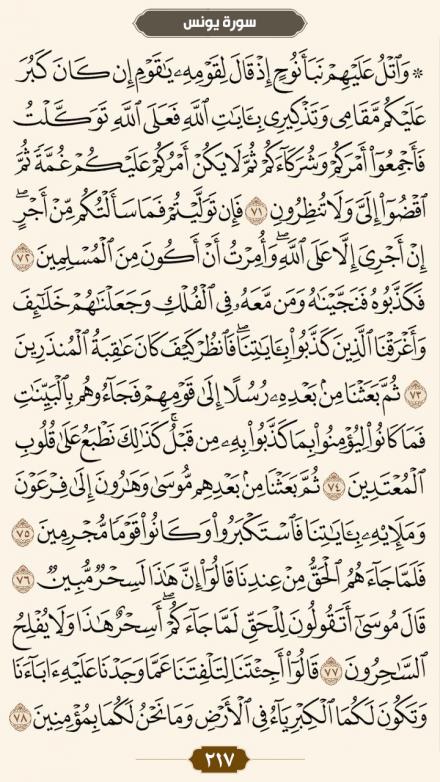 سورة يونس
۞ وَٱتۡلُ عَلَيۡهِمۡ نَبَأَ نُوحٍ إِذۡ قَالَ لِقَوۡمِهِۦ يَٰقَوۡمِ إِن كَانَ كَبُرَ
عَلَيۡكُم مَّقَامِي وَتَذۡكِيرِي بِـَٔايَٰتِ ٱللَّهِ فَعَلَى ٱللَّهِ تَوَكَّلۡتُ
فَأَجۡمِعُوٓاْ أَمۡرَكُمۡ وَشُرَكَآءَكُمۡ ثُمَّ لَا يَكُنۡ أَمۡرُكُمۡ عَلَيۡكُمۡ غُمَّةٗ ثُمَّ
ٱقۡضُوٓاْ إِلَيَّ وَلَا تُنظِرُونِ ٧١ فَإِن تَوَلَّيۡتُمۡ فَمَا سَأَلۡتُكُم مِّنۡ أَجۡرٍۖ
إِنۡ أَجۡرِيَ إِلَّا عَلَى ٱللَّهِۖ وَأُمِرۡتُ أَنۡ أَكُونَ مِنَ ٱلۡمُسۡلِمِينَ ٧٢
فَكَذَّبُوهُ فَنَجَّيۡنَٰهُ وَمَن مَّعَهُۥ فِي ٱلۡفُلۡكِ وَجَعَلۡنَٰهُمۡ خَلَٰٓئِفَ
وَأَغۡرَقۡنَا ٱلَّذِينَ كَذَّبُواْ بِـَٔايَٰتِنَاۖ فَٱنظُرۡ كَيۡفَ كَانَ عَٰقِبَةُ ٱلۡمُنذَرِينَ
٧٣ ثُمَّ بَعَثۡنَا مِنۢ بَعۡدِهِۦ رُسُلًا إِلَىٰ قَوۡمِهِمۡ فَجَآءُوهُم بِٱلۡبَيِّنَٰتِ
فَمَا كَانُواْ لِيُؤۡمِنُواْ بِمَا كَذَّبُواْ بِهِۦ مِن قَبۡلُۚ كَذَٰلِكَ نَطۡبَعُ عَلَىٰ قُلُوبِ
ٱلۡمُعۡتَدِينَ ٧٤ ثُمَّ بَعَثۡنَا مِنۢ بَعۡدِهِم مُّوسَىٰ وَهَٰرُونَ إِلَىٰ فِرۡعَوۡنَ
وَمَلَإِيْهِۦ بِـَٔايَٰتِنَا فَٱسۡتَكۡبَرُواْ وَكَانُواْ قَوۡمٗا مُّجۡرِمِينَ ٧٥
فَلَمَّا جَآءَهُمُ ٱلۡحَقُّ مِنۡ عِندِنَا قَالُوٓاْ إِنَّ هَٰذَا لَسِحۡرٞ مُّبِينٞ ٧٦
قَالَ مُوسَىٰٓ أَتَقُولُونَ لِلۡحَقِّ لَمَّا جَآءَكُمۡۖ أَسِحۡرٌ هَٰذَا وَلَا يُفۡلِحُ
ٱلسَّٰحِرُونَ ٧٧ قَالُوٓاْ أَجِئۡتَنَا لِتَلۡفِتَنَا عَمَّا وَجَدۡنَا عَلَيۡهِ ءَابَآءَنَا
وَتَكُونَ لَكُمَا ٱلۡكِبۡرِيَآءُ فِي ٱلۡأَرۡضِ وَمَا نَحۡنُ لَكُمَا بِمُؤۡمِنِينَ ٧٨
٢١٧